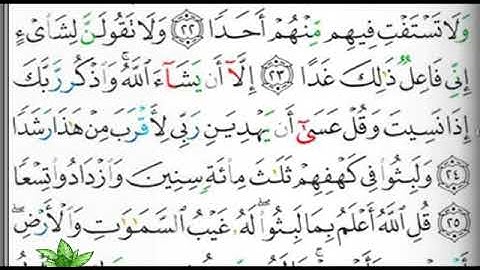 وَلَا تَسْتَفْتِ فِيهِم مِّنْهُمْ أَحَدًا ۝٢٢ وَلَا تَقُولَنَّ لِشَا۟ىْءٍ
إِنِّى فَاعِلٌ ذَٰلِكَ غَدًا ۝٢٣ إِلَّآ أَن يَشَآءَ ٱللَّهُ ۚ وَٱذْكُر رَّبَّكَ
إِذَا نَسِيتَ وَقُلْ عَسَىٰٓ أَن يَهْدِيَنِ رَبِّى لِأَقْرَبَ مِنْ هَـٰذَا رَشَدًا
۝٢٤ وَلَبِثُوا۟ فِى كَهْفِهِمْ ثَلَـٰثَ مِا۟ئَةٍ سِنِينَ وَٱزْدَادُوا۟ تِسْعًا
۝٢٥ قُلِ ٱللَّهُ أَعْلَمُ بِمَا لَبِثُوا۟ ۖ لَهُۥ غَيْبُ ٱلسَّمَـٰوَٰتِ وَٱلْأَرْضِ ۖ